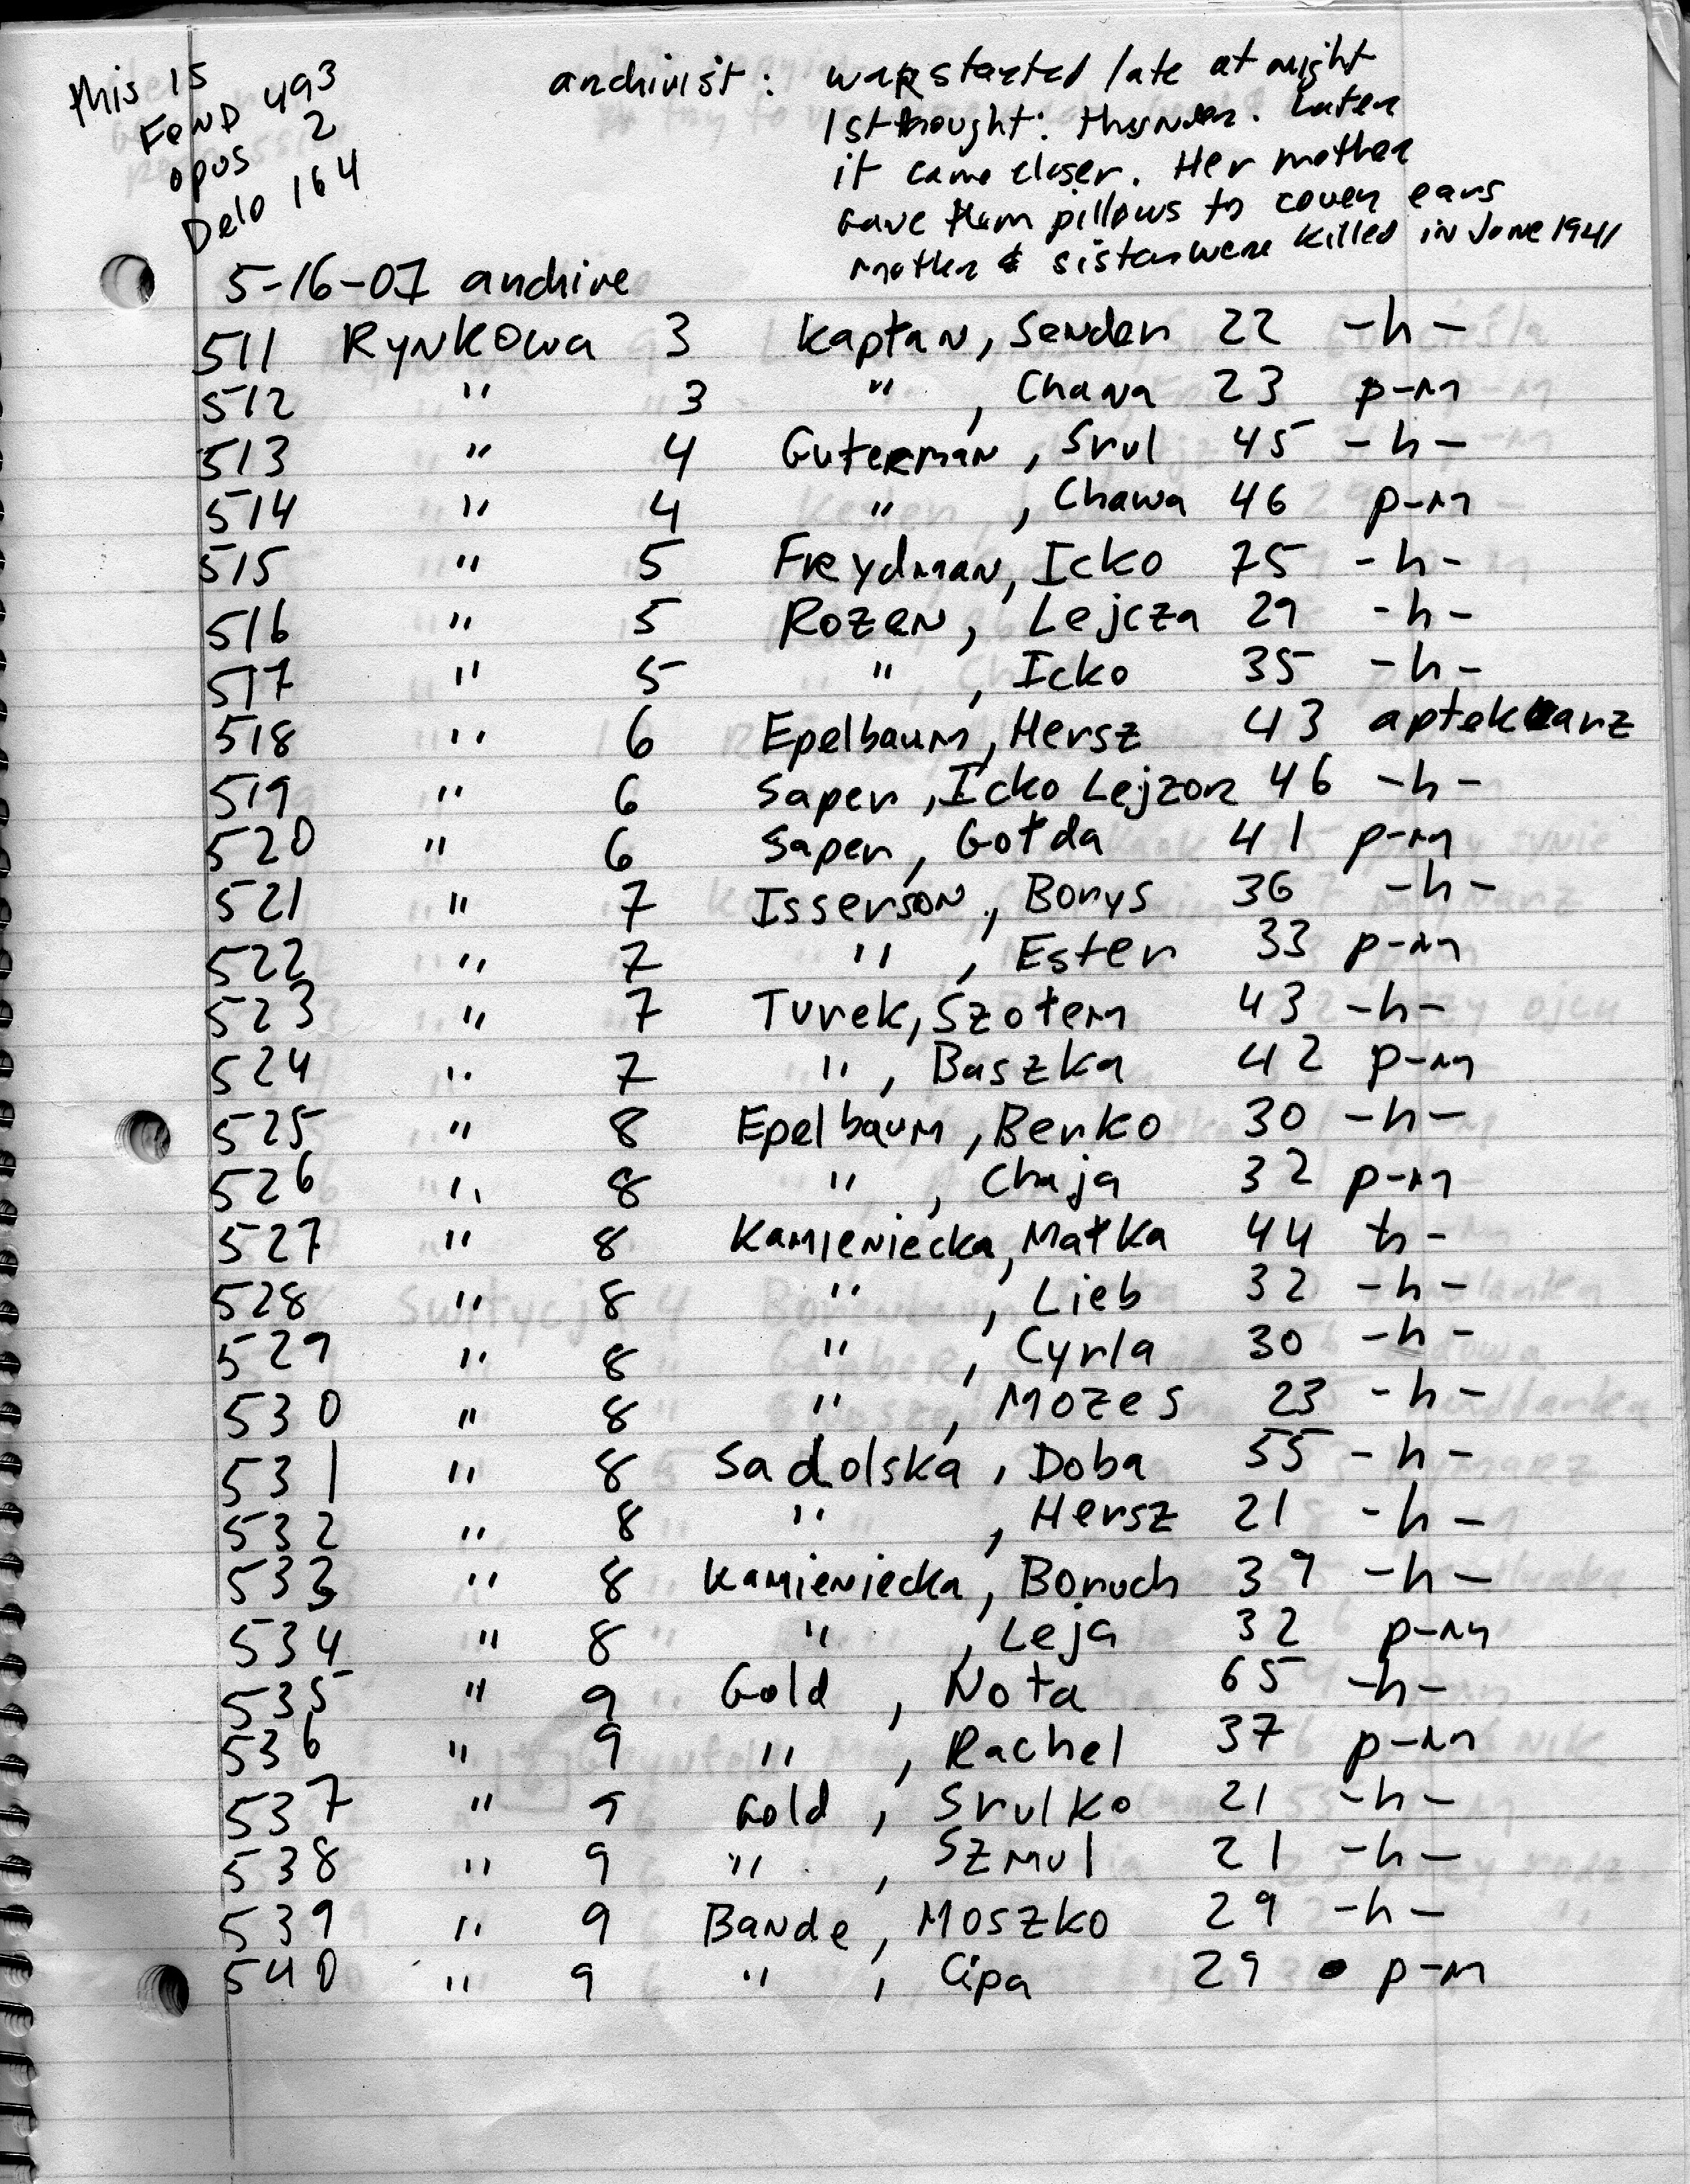 this is
FOND 493
opus 2
Delo 164
archivist: war started late at night
1st thought: thunder. Later
it came closer. Her mother
gave them pillows to cover ears
mother & sister were killed in June 1941
5-16-07 archive
511 Rynkowa 3 Kapłan, Sender 22 -h-
512 " 3 " , Chana 23 p-m
513 " 4 Guterman, Srul 45 -h-
514 " 4 " , Chawa 46 p-m
515 " 5 Freydman, Icko 75 -h-
516 " 5 Rozen, Lejcza 29 -h-
517 " 5 " , Icko 35 -h-
518 " 6 Epelbaum, Hersz 43 aptekarz
519 " 6 Saper, Icko Lejzor 46 -h-
520 " 6 Saper, Gołda 41 p-m
521 " 7 Isserson, Borys 36 -h-
522 " 7 " , Ester 33 p-m
523 " 7 Turek, Szołem 43 -h-
524 " 7 " , Baszka 42 p-m
525 " 8 Epelbaum, Berko 30 -h-
526 " 8 " , Chaja 32 p-m
527 " 8 Kamieniecka, Małka 44 h-
528 " 8 " , Lieb 32 -h-
529 " 8 " , Cyrla 30 -h-
530 " 8 " , Mozes 23 -h-
531 " 8 Sadolska, Doba 55 -h-
532 " 8 " , Hersz 21 -h-
533 " 8 Kamieniecka, Boruch 39 -h-
534 " 8 " , Leja 32 p-m
535 " 9 Gold , Nota 65 -h-
536 " 9 " , Rachel 37 p-m
537 " 9 Gold , Srulko 21 -h-
538 " 9 " , Szmul 21 -h-
539 " 9 Bande, Moszko 29 -h-
540 " 9 " , Cipa 29 p-m